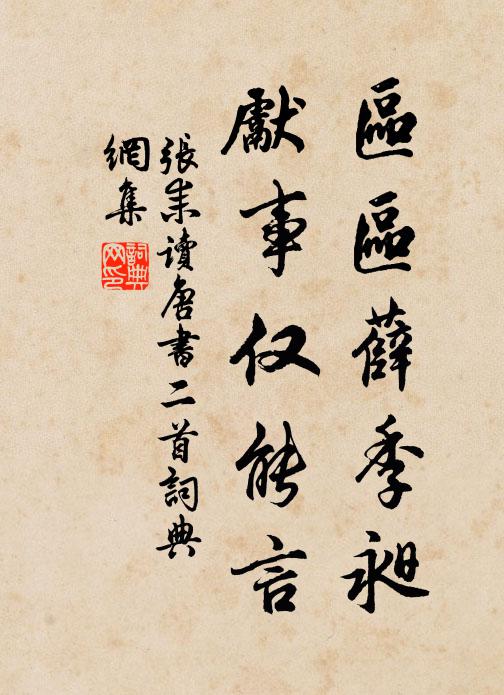 區區薛季昶
獻事仅能言
張耒讀唐書二首詞典
網集
詞典
网印